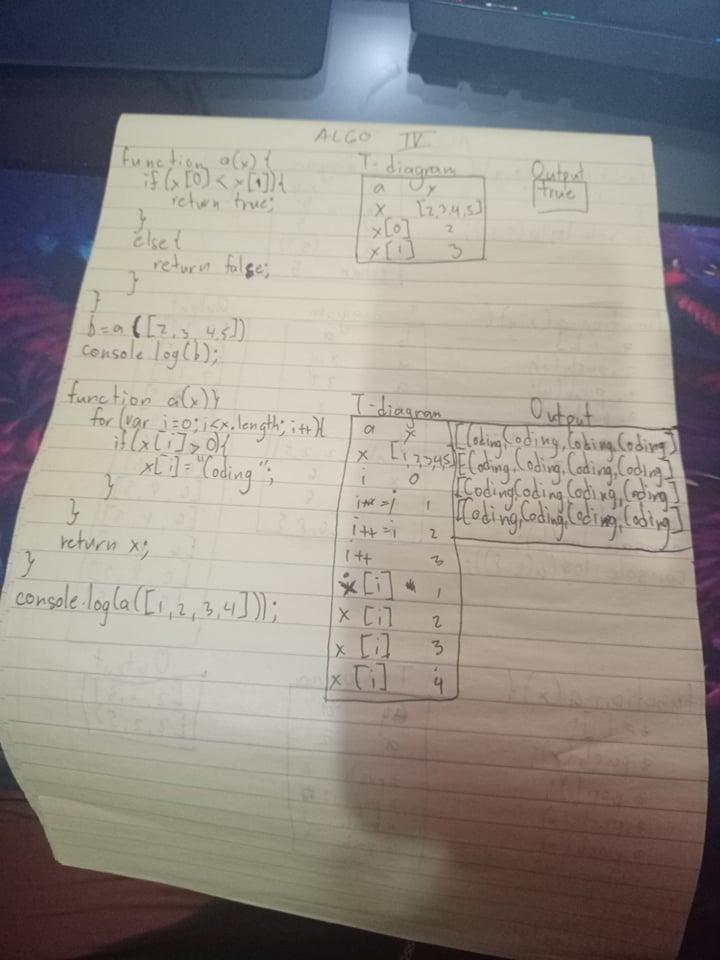 ALGO IV
function a(x){
if(x[0] < x[1]){
return true;
}
else{
return false;
}
}
b=a([2,3,4,5])
console.log(b);
T-diagram
a x
x [2,3,4,5]
x[0] 2
x[1] 3
Output
true
function a(x){
for(var i=0; i<x.length; i++){
if(x[i]>0){
x[i]="Coding";
}
}
return x;
}
console.log(a([1,2,3,4]));
T-diagram
a x
x [1,2,3,4,5]
i 0
i++=i 1
i++=i 2
i++ 3
x[i] 1
x[i] 2
x[i] 3
x[i] 4
Output
[Coding,Coding,Coding,Coding]
[Coding,Coding,Coding,Coding]
[Coding,Coding,Coding,Coding]
[Coding,Coding,Coding,Coding]